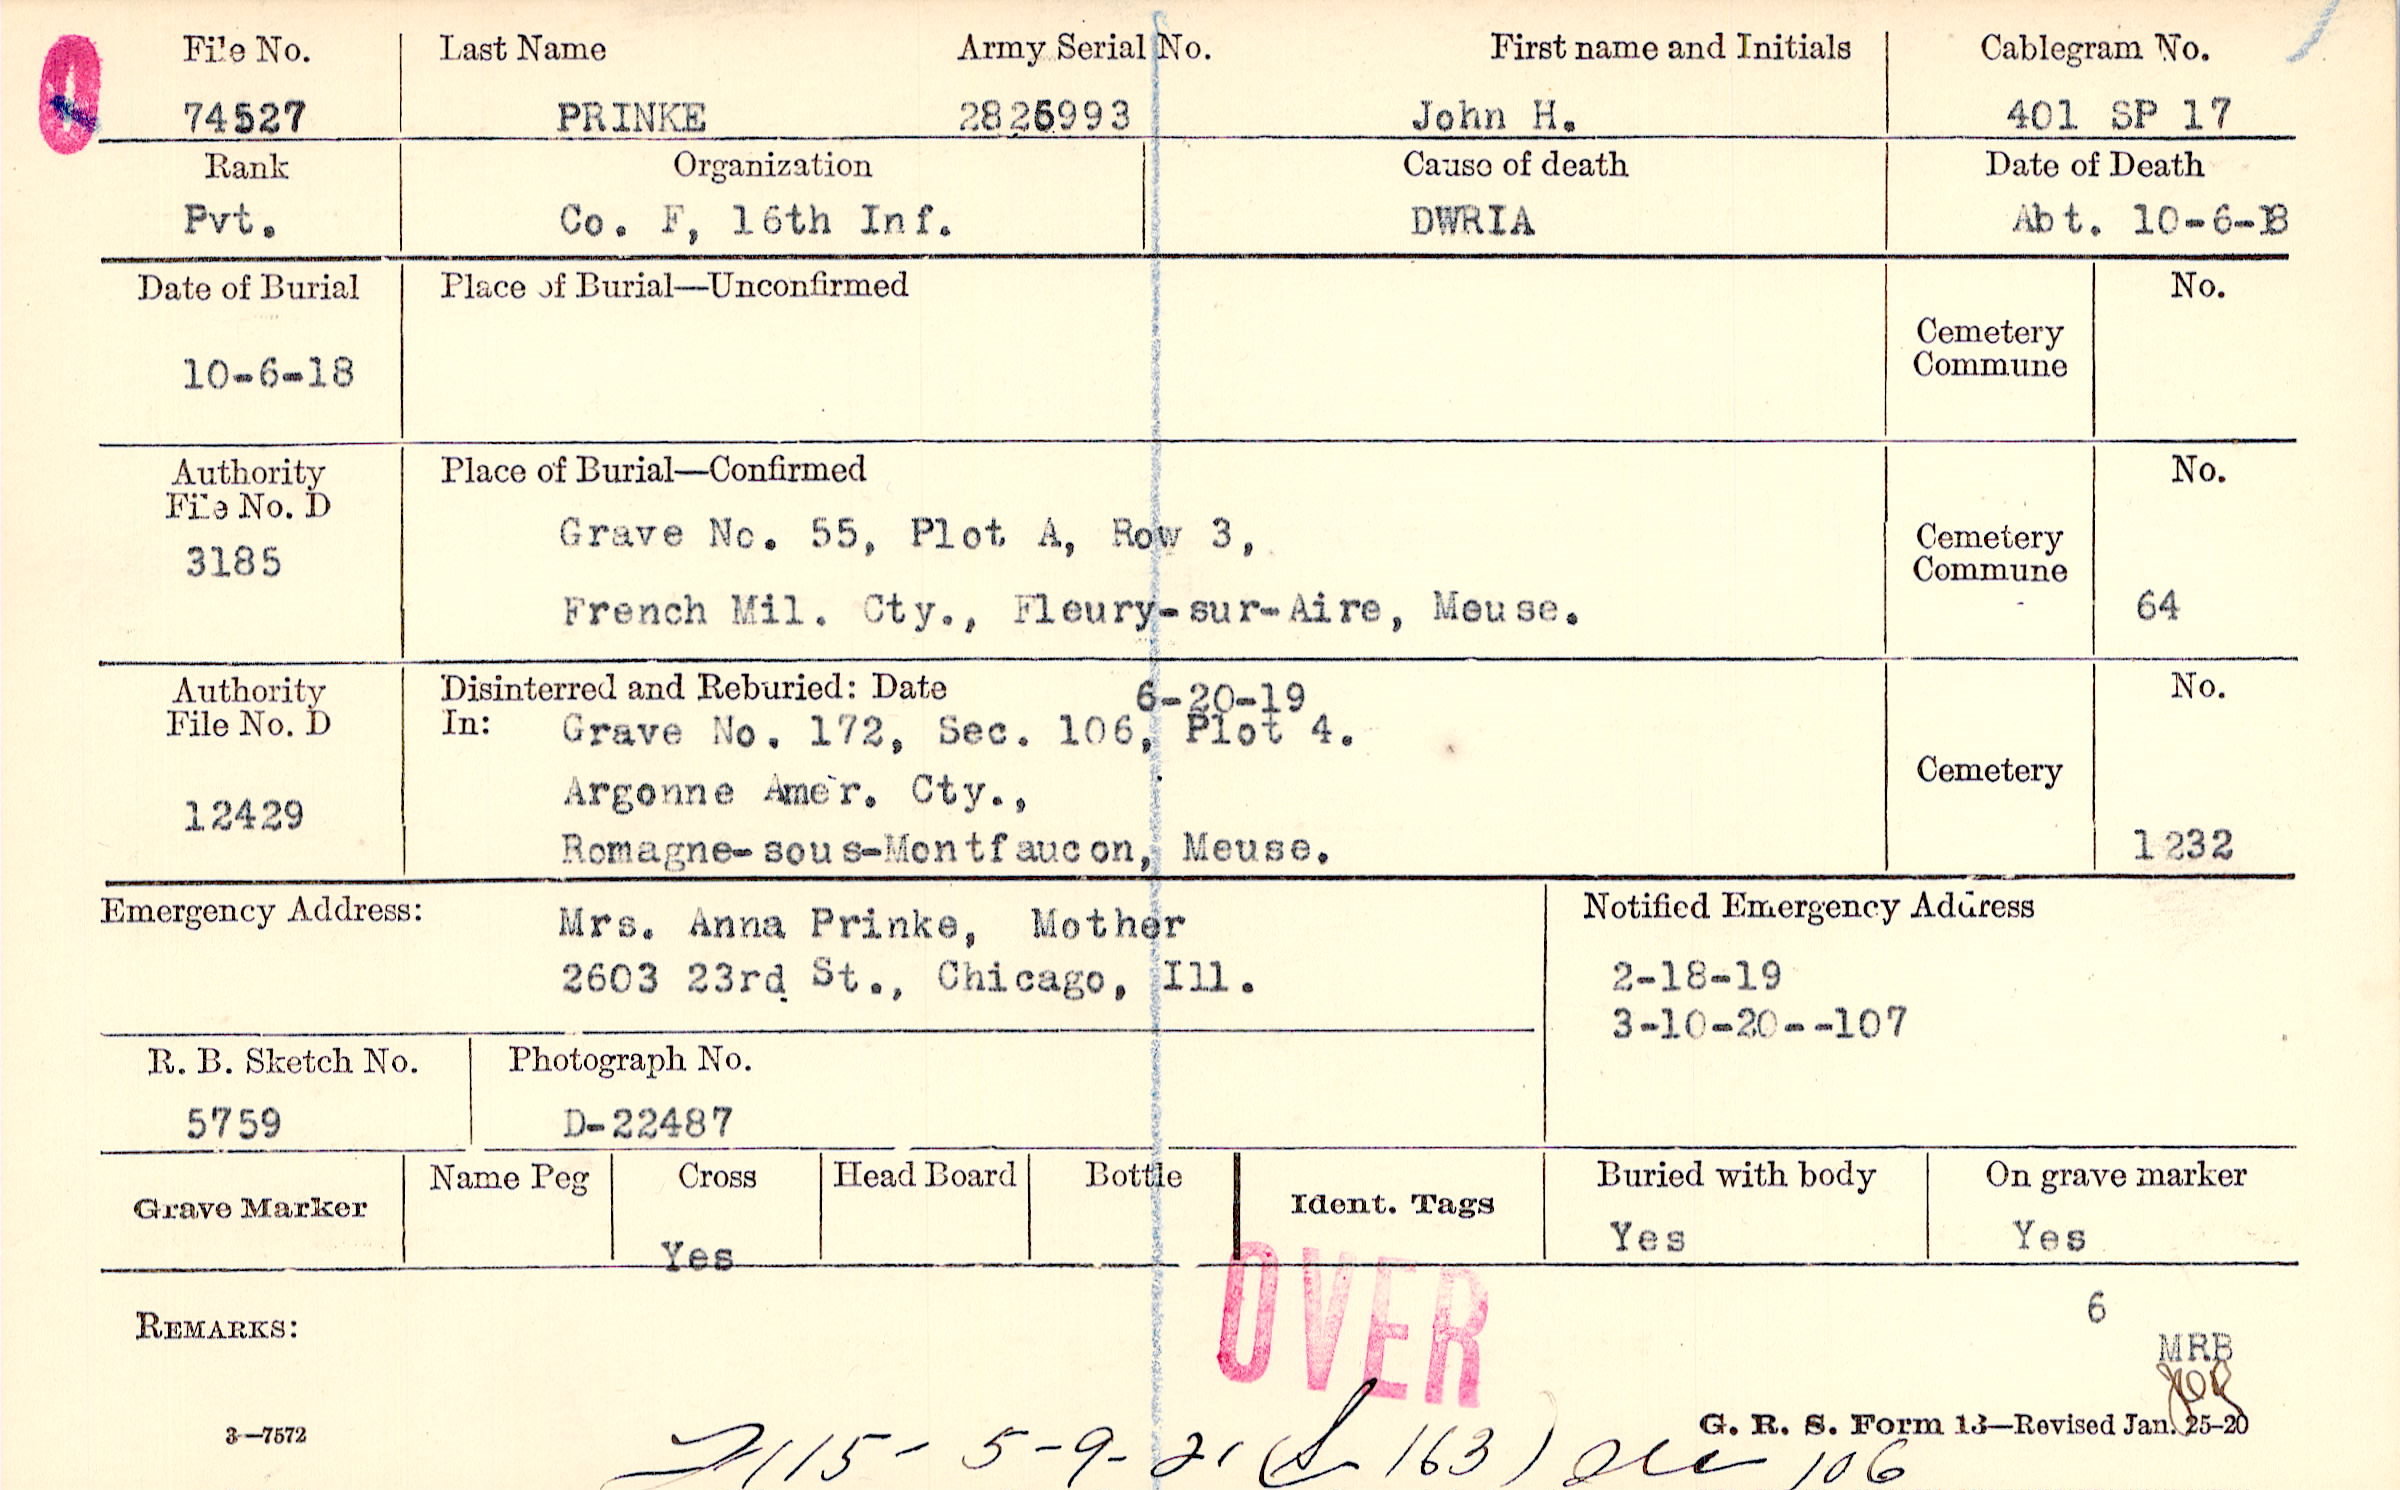 File No. Last Name Army Serial No. First name and Initials Cablegram No.
74527 PRINKE 2826993 John H. 401 SP 17
Rank Organization Cause of death Date of Death
Pvt. Co. F, 16th Inf. DWRIA Abt. 10-6-18
Date of Burial Place of Burial—Unconfirmed No.
10-6-18
Cemetery
Commune
Authority Place of Burial—Confirmed No.
File No. D
3185
Grave No. 55, Plot A, Row 3,
French Mil. Cty., Fleury-sur-Aire, Meuse.
Cemetery
Commune
64
Authority Disinterred and Reburied: Date 6-20-19 No.
File No. D In: Grave No. 172, Sec. 106, Plot 4.
12429
Argonne Amer. Cty.,
Romagne-sous-Montfaucon, Meuse.
Cemetery
1232
Emergency Address: Mrs. Anna Prinke, Mother
2603 23rd St., Chicago, Ill.
Notified Emergency Address
2-18-19
3-10-20--107
R. B. Sketch No. Photograph No.
5759 D-22487
Grave Marker Name Peg Cross Head Board Bottle Ident. Tags Buried with body On grave marker
Yes Yes Yes
OVER
6
REMARKS:
MRB
3—7572
G. R. S. Form 13—Revised Jan. 25-20
115- 5-9-21 163) 106